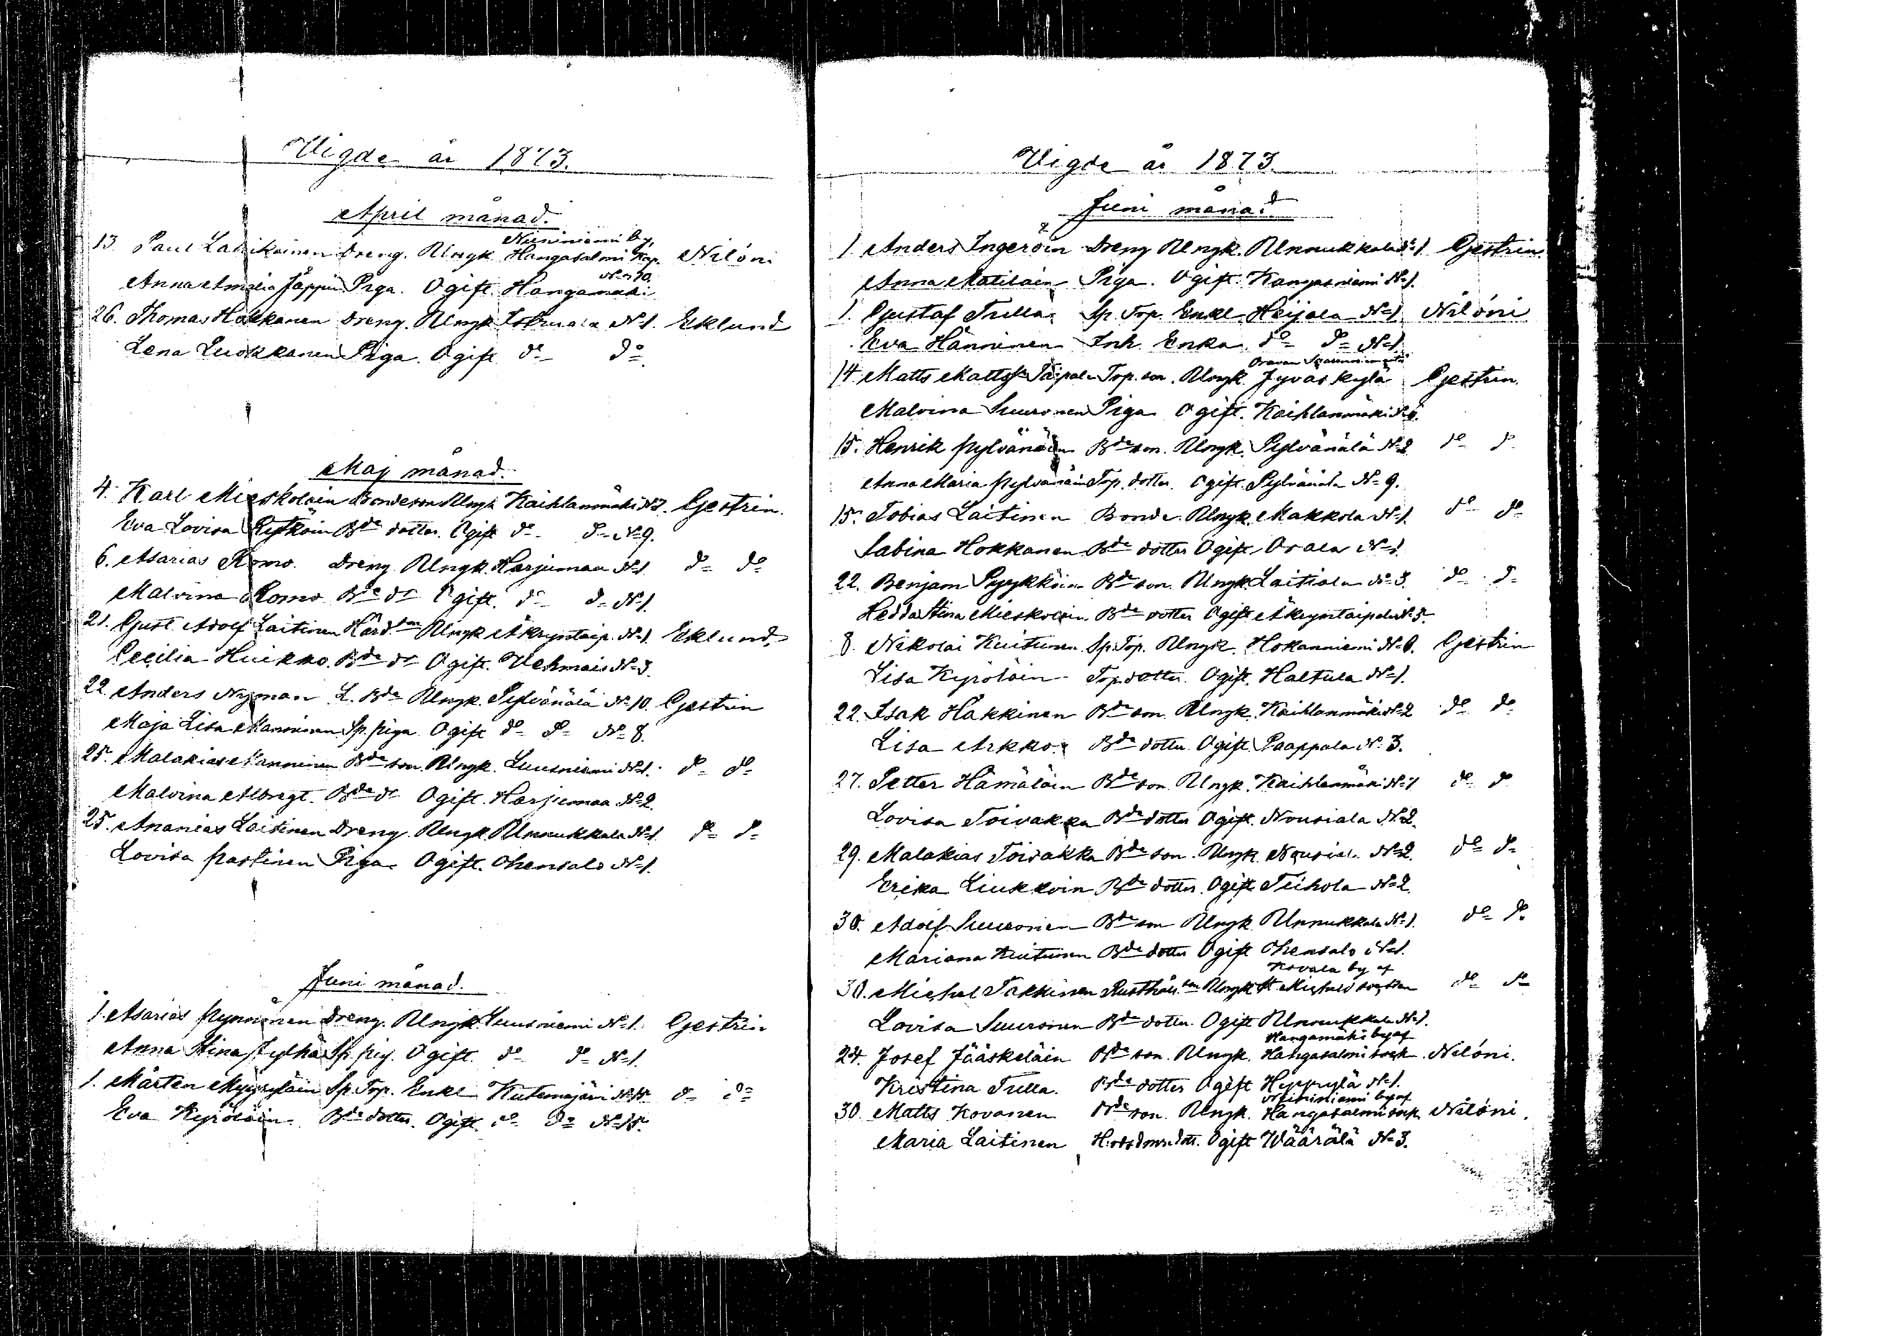 Vigde år 1873.
April månad.
Niininiemi by,
13. Paul Laurikainen Dreng. Ungk. Hangasalmi kap. Nilóni
No 10.
Anna Amalia Jäppin Piga. Ogift. Hangamäki.
26. Thomas Hokkanen Dreng. Ungk. No 1. Eklund
Lena Luokkanen Piga. Ogift do do
Maj månad.
4. Karl Mieskoläin Bondeson Ungk. Kaihlanmäki No 7. Gestrin.
Eva Lovisa Kytköin Bde dotter. Ogift do do No 9.
6. Asarias Romo. Dreng Ungk. Harjumaa No 1. do do
Malvina Romo Bde dr Ogift. do do No 1.
21. Gust. Adolf Laitinen Hard. son Ungk Äkryntaip. No 1. Eklund.
Cecilia Huikko. Bde dr Ogift. Vehmais No 3.
22. Anders Nyman L. Bde Ungk. Pylvänälä No 10. Gestrin
Maja Lisa Manninen Sp. piga Ogift do do No 8.
25. Malakias Manninen Bde son. Ungk. Luusniemi No 1. do do
Malvina Albregt. Bde dr Ogift. Harjumaa No 2.
25. Ananias Laitinen Dreng. Ungk. Unnukkala No 1. do do
Lovisa Partinen Piga Ogift. Ohensalo No 1.
Juni månad.
1. Asarias Pynnönen Dreng. Ungk. Luusniemi No 1. Gestrin
Anna Stina Jylhä Sp. pig. Ogift. do do No 1.
1. Mårten Myyryläin Sp. Top. Enkl. Kutemajärvi No 14. do do
Eva Kyröläin Bde dotter. Ogift. do do No 14.
Vigde år 1873.
Juni månad
1. Anders Ingeröin Dreng Ungk. Unnukkala No 1. Gestrin
Anna Matilain Piga. Ogift. Kangasniemi No 1.
1. Gustaf Tulla. Sp. Top. Enkl. Reijola No 1. Nilóni
Eva Hänninen Inh. Enka. do do No 1.
14. Matts Mattss. Taipale Top. son. Ungk. Jyväskylä Gestrin.
Malvina Suuronen Piga Ogift. Kaihlanmäki No 6.
15. Henrik Pylvänäin Bde son. Ungk. Pylvänälä No 2. do do
Anna Maria Pylvänäin Top. dotter. Ogift. Pylvänälä No 9.
15. Tobias Laitinen Bonde. Ungk. Makkola No 1. do do
Sabina Hokkanen Bde dotter Ogift. No 1.
22. Benjam Pyykköin Bde son. Ungk. Laitiala No 3. do do
Hedda Stina Mieskoläin Bde dotter Ogift Äkryntaipale No 5.
8. Nikolai Kuitunen Sp. Top. Ungk. Hokanniemi No 6. Gestrin
Lisa Kyröläin Top. dotter. Ogift. Haltula No 1.
22. Isak Hakkinen Bde son. Ungk. Kaihlanmäki No 2 do do
Lisa Arkko. Bde dotter. Ogift. Paappala No 3.
27. Petter Hämäläin Bde son. Ungk. Kaihlanmäki No 1 do do
Lovisa Toivakka Bde dotter Ogift. Nousiala No 2.
29. Malakias Toivakka Bde son. Ungk. Nousiala No 2. do do
Erika Liukkoin Bde dotter. Ogift Teihola No 2.
30. Adolf Suuronen Bde son Ungk. Unnukkala No 1. do do
Mariana Kuitunen Bde dotter Ogift Ohensalo No 1.
Kovala by af
30. Michel Takkinen Rusthåll. son Ungk. St. Michels socken do do
Lovisa Suuronen Bde dotter. Ogift Unnukkala No 1.
Hangamäki by af
24. Josef Jääskeläin Bde son. Ungk. Hangasalmi sock. Nilóni.
Kristina Tulla. Bde dotter Ogift Hyppylä No 1.
Niininiemi by af
30. Matts Kovanen Bde son. Ungk. Hangasalmi sock. Nilóni.
Maria Laitinen dott. Ogift Wäärälä No 3.